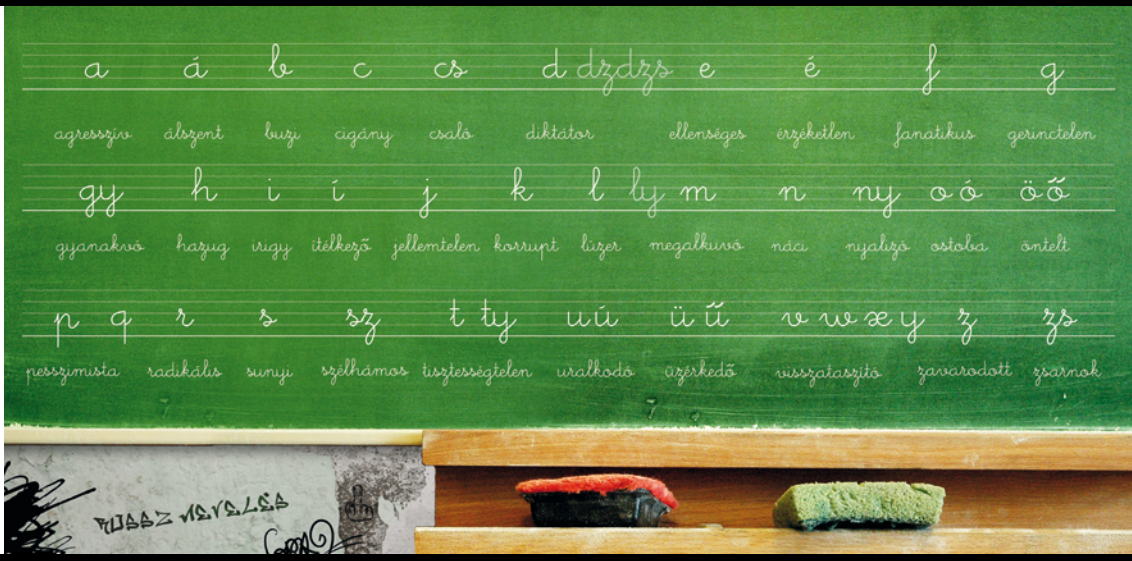 a á b c cs d dz dzs e é f g
agresszív álszent buzi cigány csaló diktátor ellenséges érzéketlen fanatikus gerinctelen
gy h i í j k l ly m n ny o ó ö ő
gyanakvó hazug irigy ítélkező jellemtelen korrupt lúzer megalkuvó náci nyalizó ostoba öntelt
p q r s sz t ty u ú ü ű v w x y z zs
pesszimista radikális sunyi szélhámos tisztességtelen uralkodó üzérkedő visszataszító zavarodott zsarnok
ROSSZ NEVELÉS